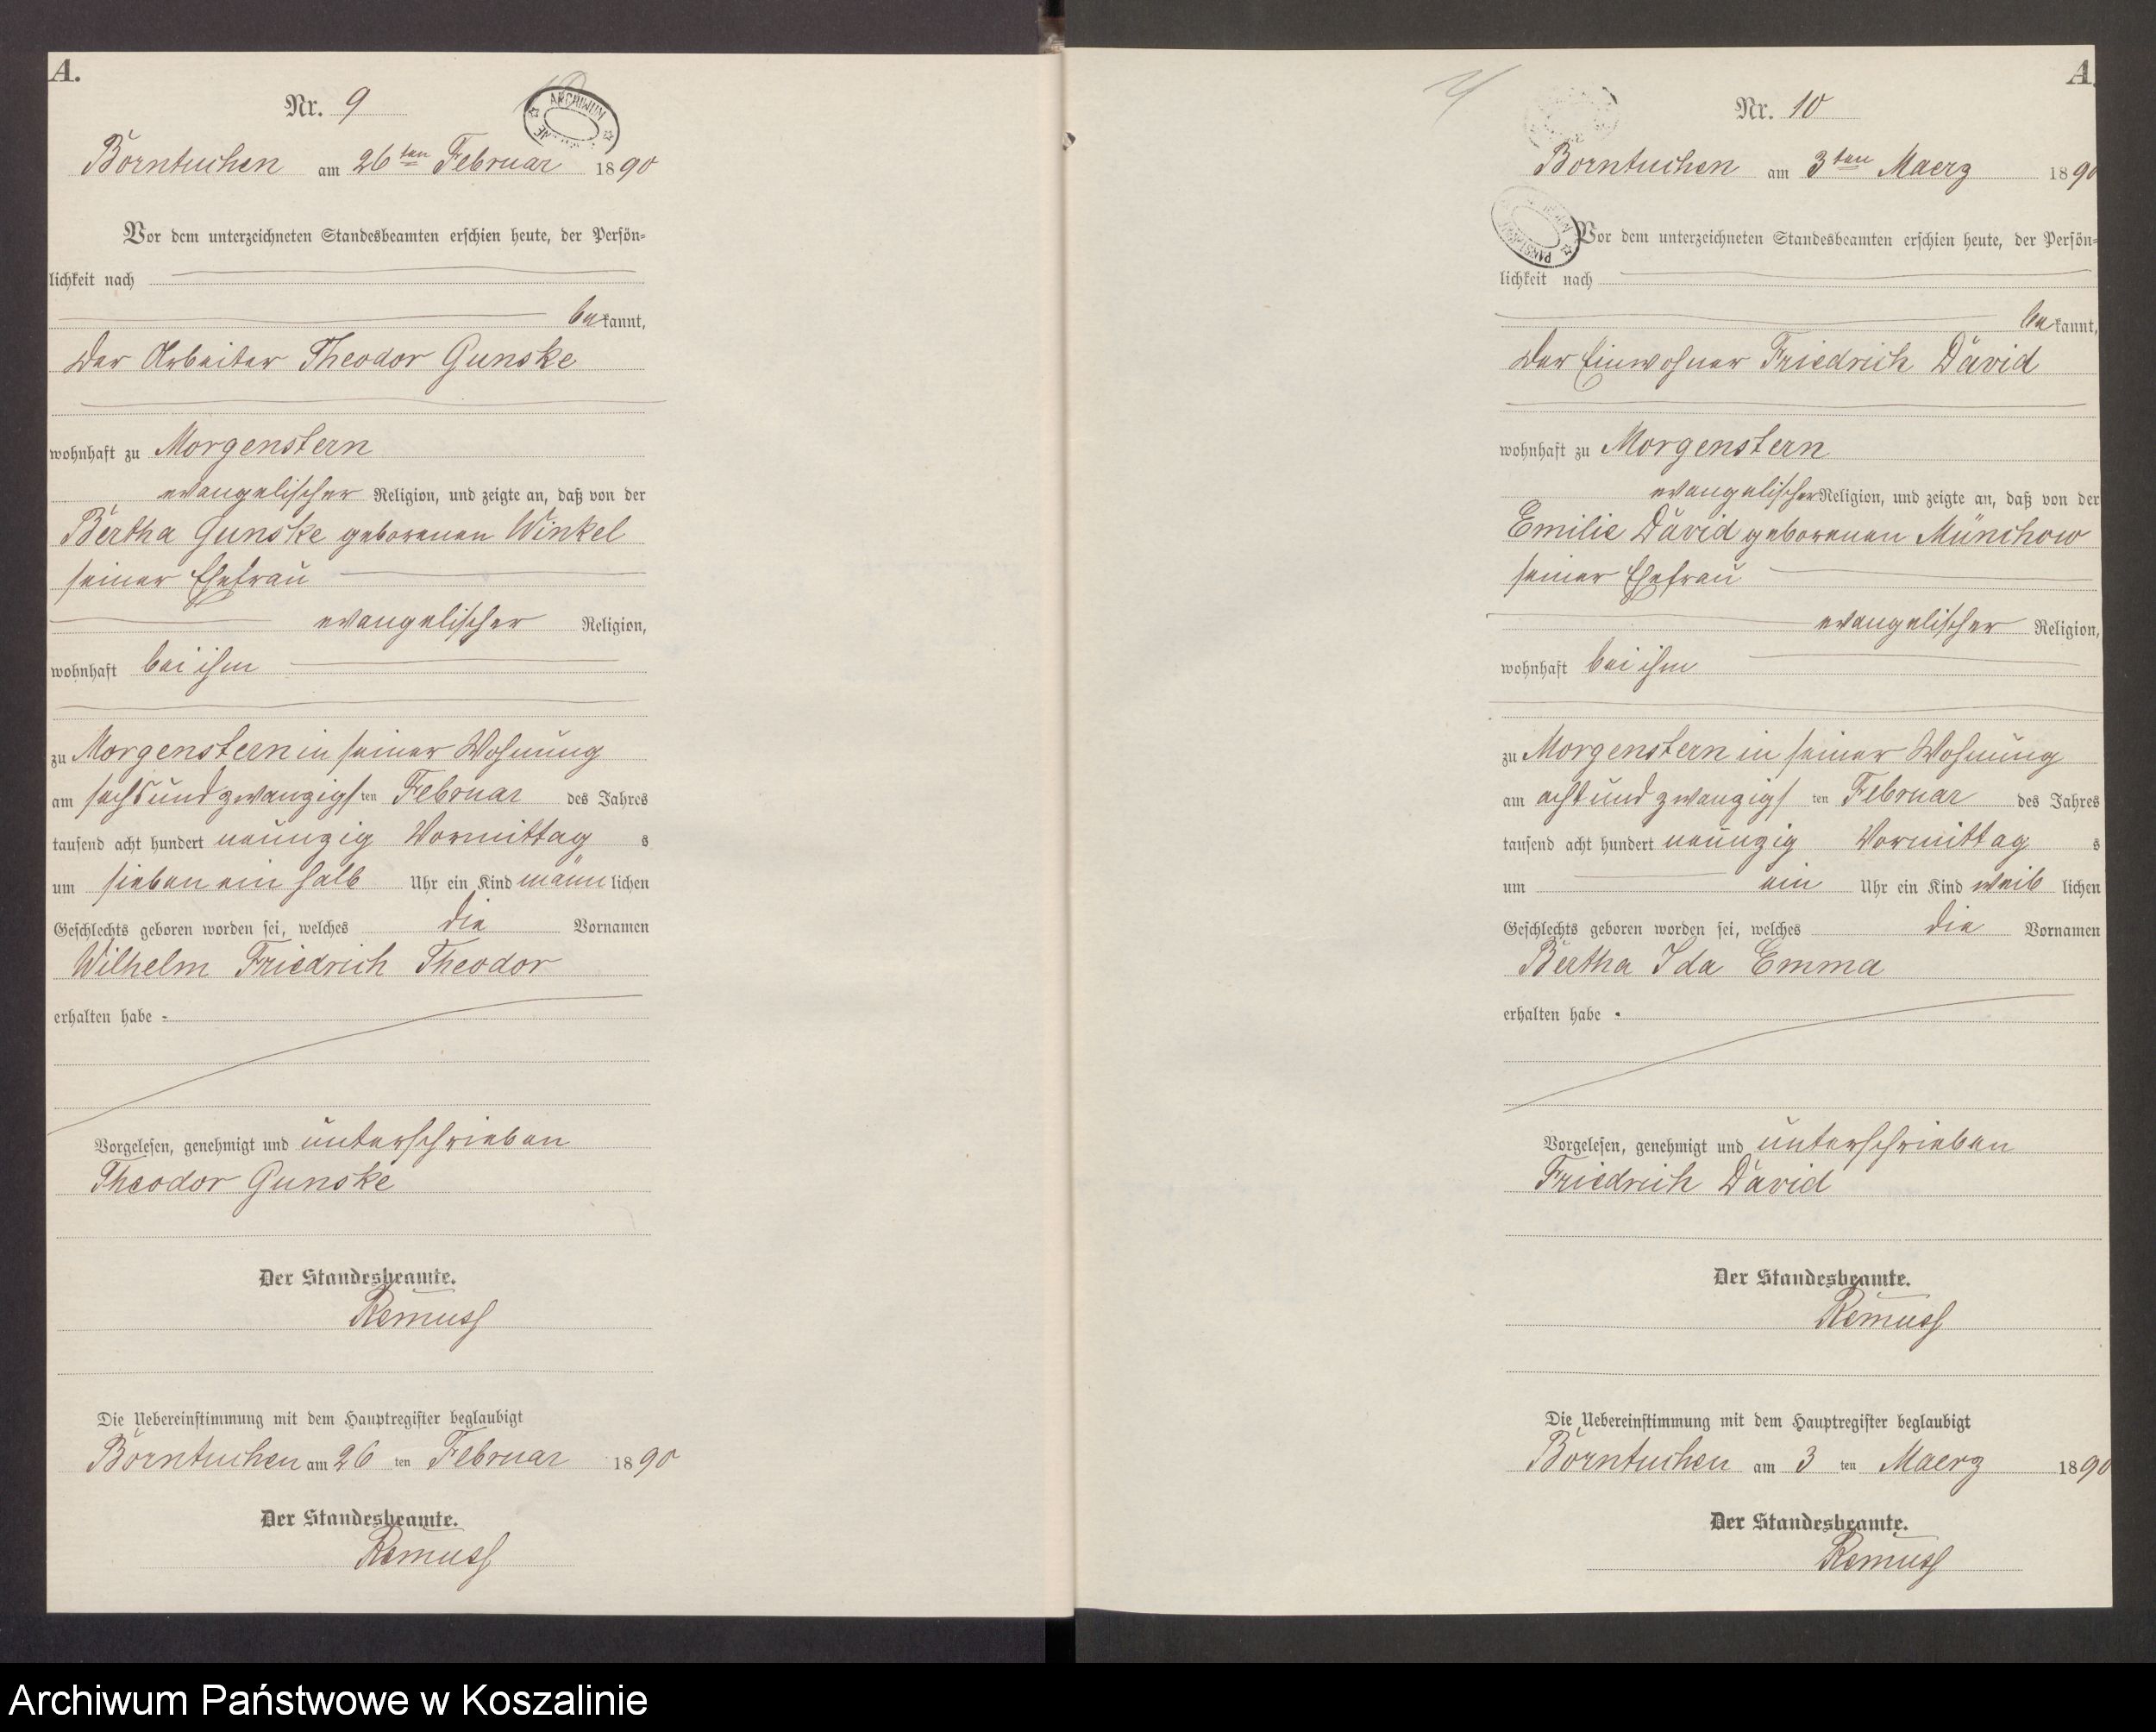 A.
Nr. 9
ARCHIWUM
Borntuchen am 26ten Februar 1890
Vor dem unterzeichneten Standesbeamten erschien heute, der Persön-
lichkeit nach
bekannt,
der Arbeiter Theodor Gunske
wohnhaft zu Morgenstern
evangelischer Religion, und zeigte an, daß von der
Bertha Gunske geborenen Winkel
seiner Ehefrau
evangelischer Religion,
wohnhaft bei ihm
zu Morgenstern in seiner Wohnung
am sechsundzwanzigsten Februar des Jahres
tausend acht hundert neunzig Vormittags
um sieben ein halb Uhr ein Kind männlichen
Geschlechts geboren worden sei, welches die Vornamen
Wilhelm Friedrich Theodor
erhalten habe.
Vorgelesen, genehmigt und unterschrieben
Theodor Gunske
Der Standesbeamte.
Remuss
Die Uebereinstimmung mit dem Hauptregister beglaubigt
Borntuchen am 26 ten Februar 1890
Der Standesbeamte.
Remuss
A.
Nr. 10
Borntuchen am 3ten Maerz 1890
Vor dem unterzeichneten Standesbeamten erschien heute, der Persön-
lichkeit nach
bekannt,
der Einwohner Friedrich David
wohnhaft zu Morgenstern
evangelischer Religion, und zeigte an, daß von der
Emilie David geborenen Münchow
seiner Ehefrau
evangelischer Religion,
wohnhaft bei ihm
zu Morgenstern in seiner Wohnung
am achtundzwanzigsten Februar des Jahres
tausend acht hundert neunzig Vormittags
um ein Uhr ein Kind weiblichen
Geschlechts geboren worden sei, welches die Vornamen
Bertha Ida Emma
erhalten habe.
Vorgelesen, genehmigt und unterschrieben
Friedrich David
Der Standesbeamte.
Remuss
Die Uebereinstimmung mit dem Hauptregister beglaubigt
Borntuchen am 3 ten Maerz 1890
Der Standesbeamte.
Remuss
Archiwum Państwowe w Koszalinie